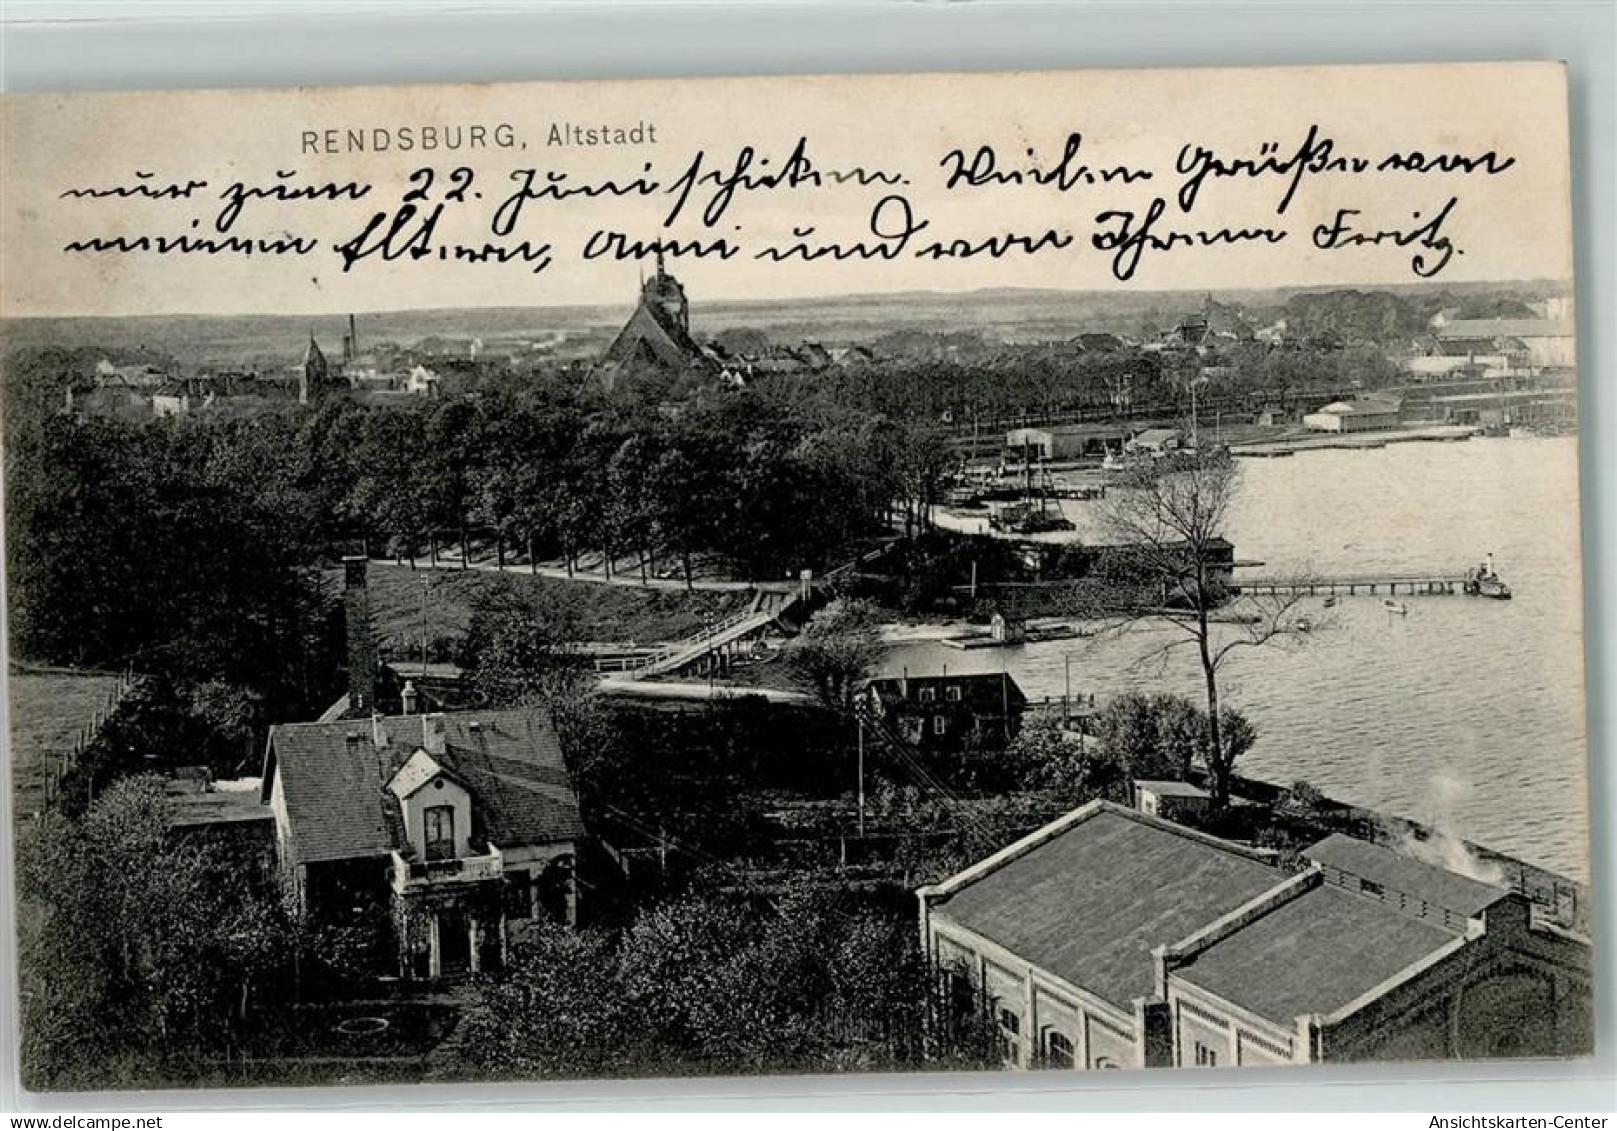 RENDSBURG, Altstadt
nur zum 22. Juni schicken. Vielen Grüße von
meinen Eltern, Anni und von Ihrem Fritz.
delcampe.net
Ansichtskarten-Center